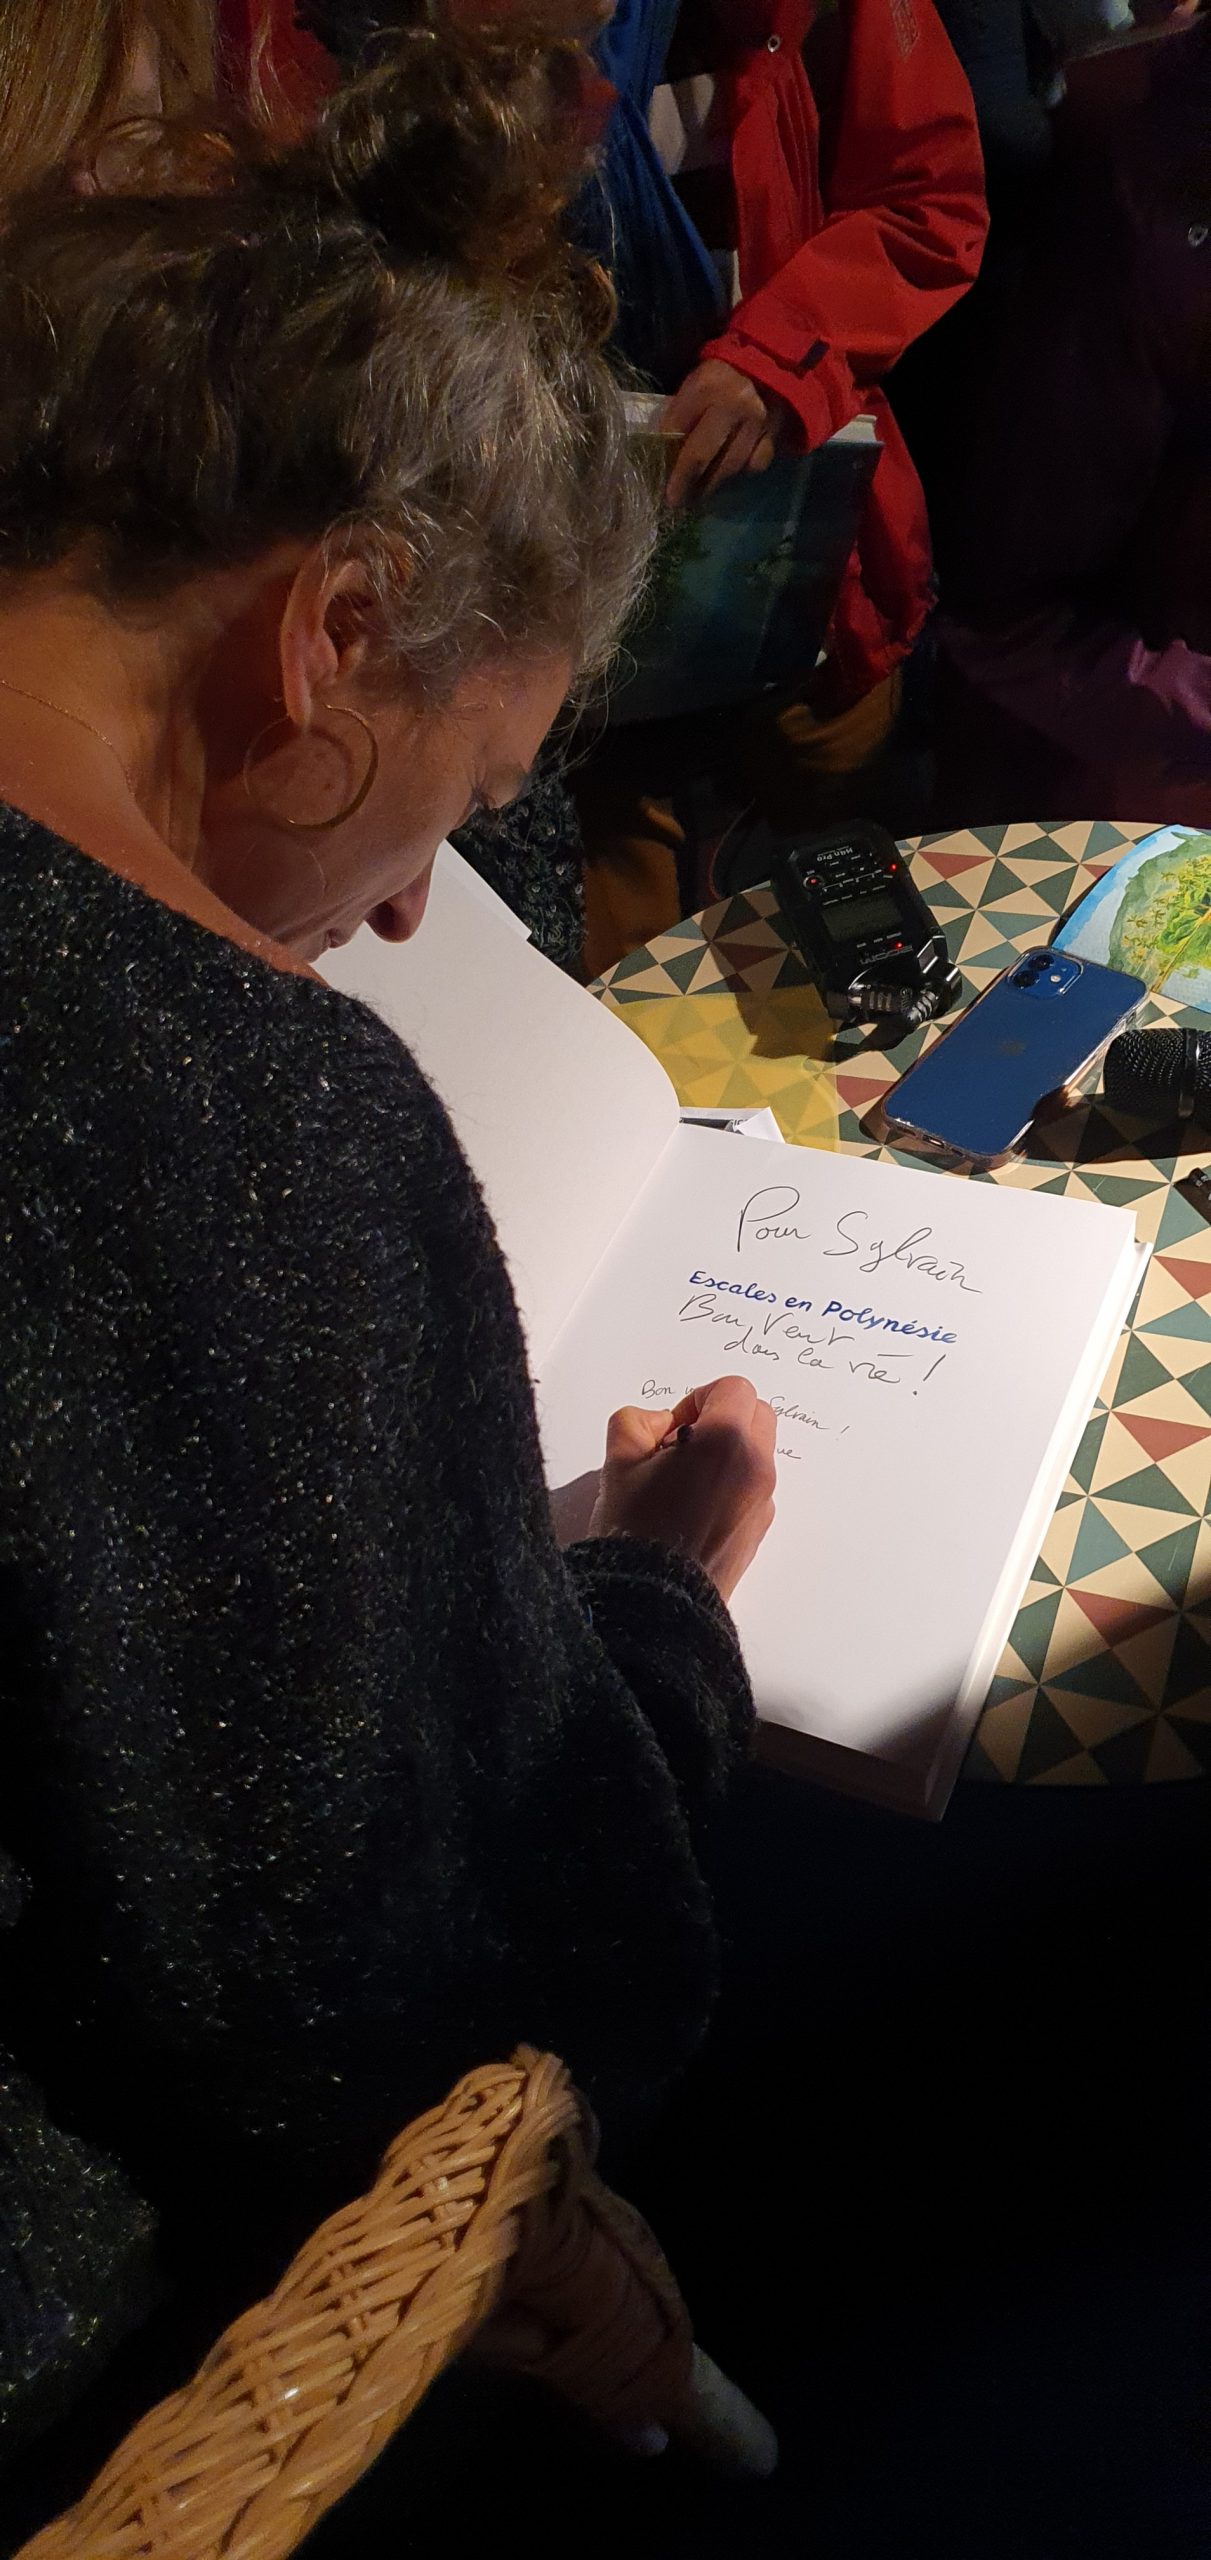 Pour Sylvain
Escales en Polynésie
Bon Vent
dans la vie !
Bon Sylvain !
H4n Pro
zoom